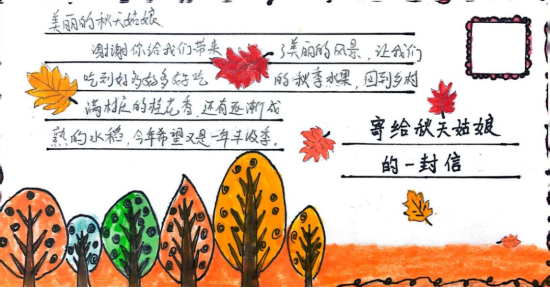 美丽的秋天姑娘
谢谢你给我们带来了美丽的风景,让我们
吃到好多好多好吃的秋季水果,回到乡村
满村庄的桂花香,还有逐渐成
熟的水稻,今年希望又是一年丰收季。
寄给秋天姑娘
的一封信